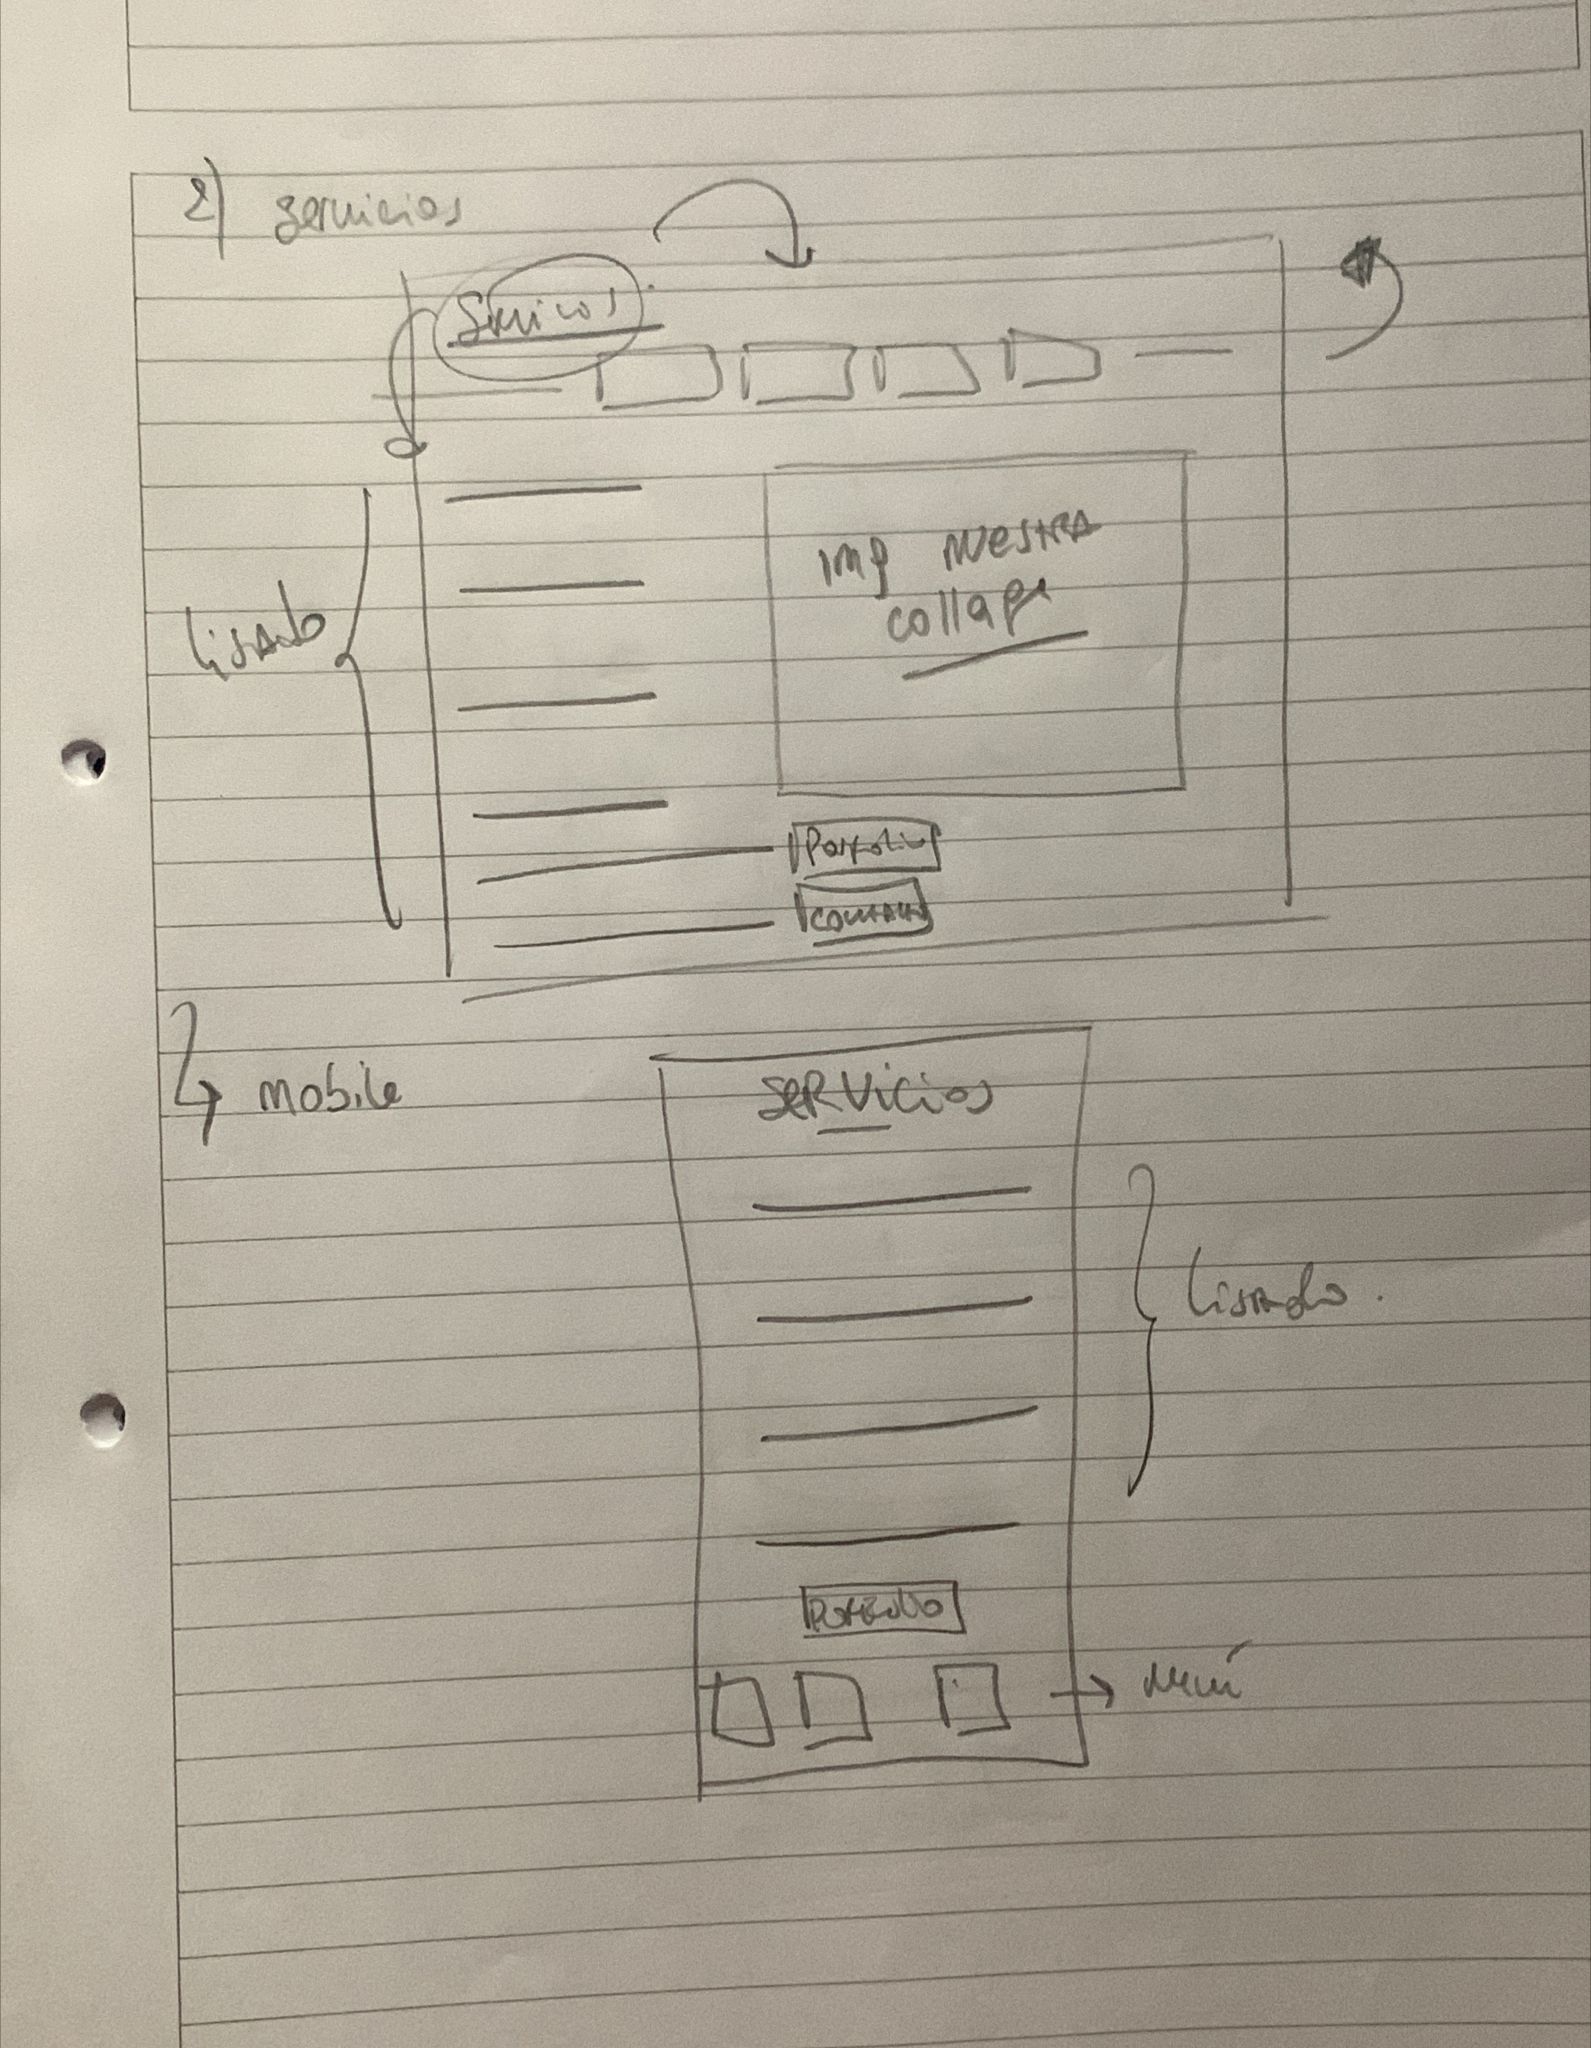 2) servicios
Servicios
img nuestra
collage
Listado
Portfolio
contacto
mobile
SERVICIOS
Listado.
Portfolio
Menú